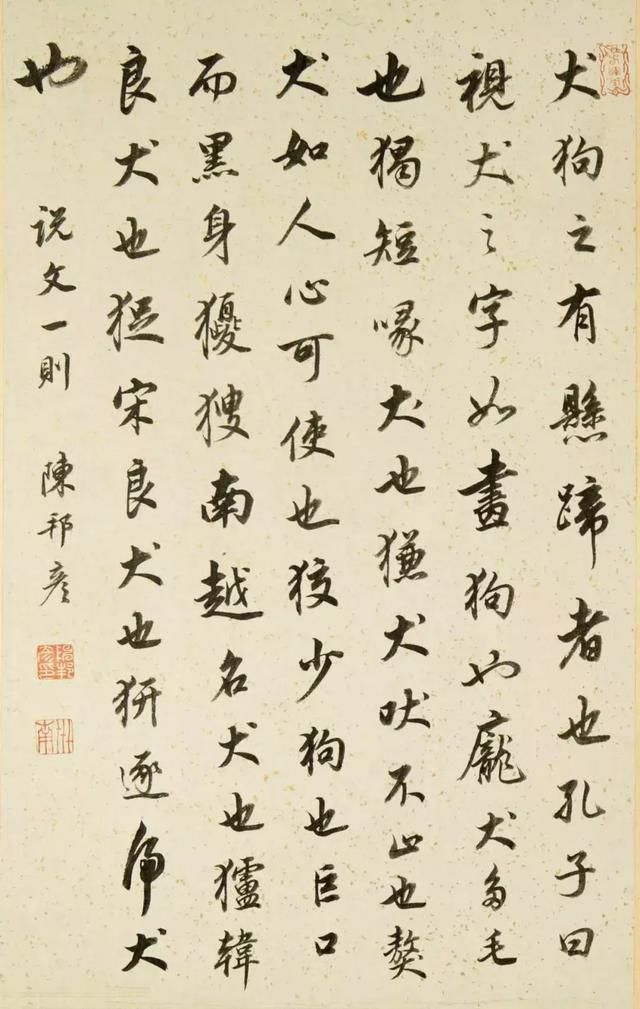 犬狗之有懸蹄者也孔子曰
視犬之字如畫狗也龐犬多毛
也猲短喙犬也獫犬吠不止也獒
犬如人心可使也狡少狗也巨口
而黑身獿獀南越名犬也獹韓
良犬也猑宋良犬也猏逐虎犬
也
說文一則
陳邦彥